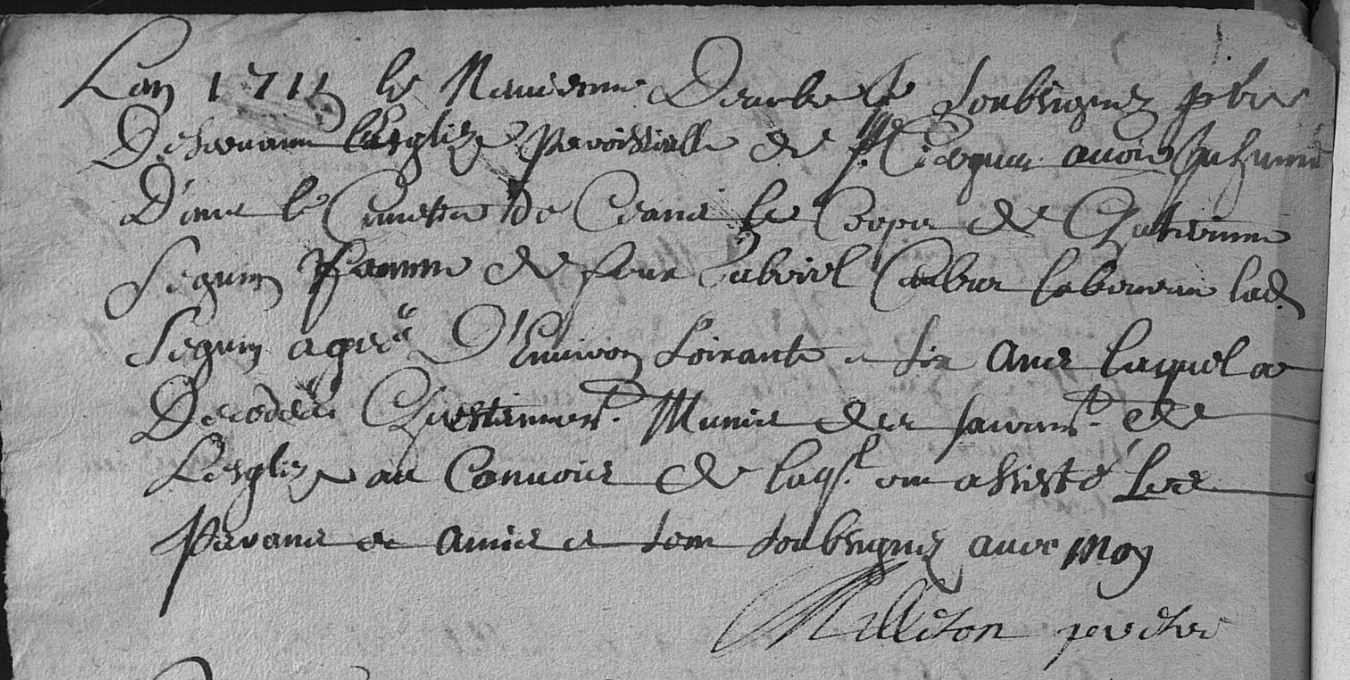 Lan 1711 le Neuviesme Decembre Je Soubsigne pbre
Deservant Lesglize Paroissialle de St Ciergue avoir Inhumé
Dans le Cimetiere de Ceans le Corps de Catherine
Seguin Famme de feux Gabriel laboureur lad.
Seguin agee D'Environ Soixante e six Ans laquel a
Decedee Chrestiennemt. Munie des sacremt. de
Lesglize au Convois de laqle. on assisté Les
Parans et Amis e son soubsignez avec Moy
prestre